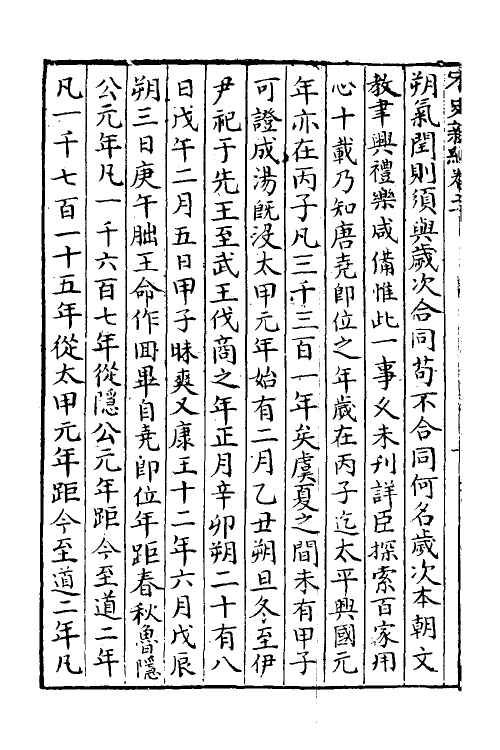 朔氣閏則須與歲次合同苟不合同何名歲次本朝文
教聿興禮樂咸備惟此一事久未刊詳臣探索百家用
心十載乃知唐堯即位之年歲在丙子迄太平興國元
年亦在丙子凡三千三百一年矣虞夏之間未有甲子
可證成湯旣没太甲元年始有二月乙丑朔旦冬至伊
尹祀于先王至武王伐商之年正月辛卯朔二十有八
日戊午二月五日甲子昧爽又康王十二年六月戊辰
朔三日庚午朏王命作冊畢自堯即位年距春秋魯隱
公元年凡一千六百七年從隱公元年距今至道二年
凡一千七百一十五年從太甲元年距今至道二年凡